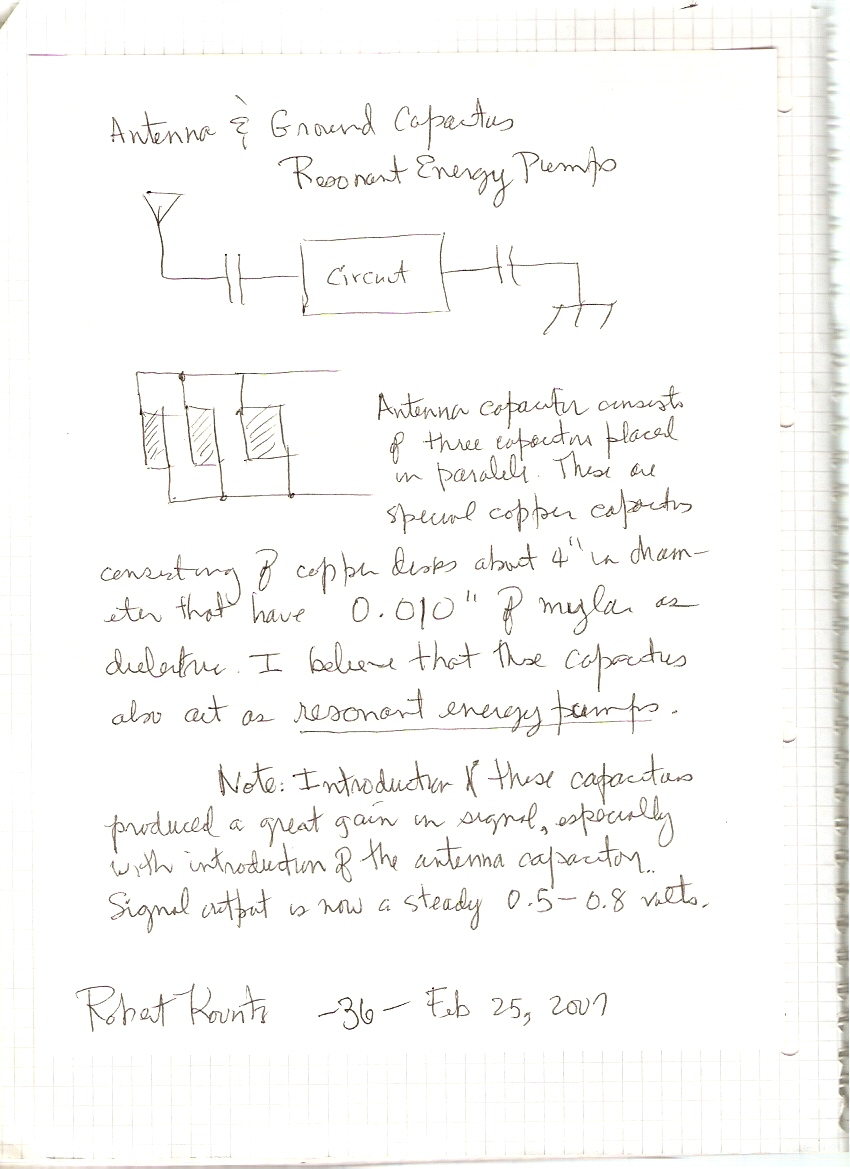 Antenna & Ground Capacitors
Resonant Energy Pumps
Circuit
Antenna capacitor consists
of three capacitors placed
in parallel. These are
special copper capacitors
consisting of copper disks about 4" in diam-
eter that have 0.010" of mylar as
dielectric. I believe that these capacitors
also act as resonant energy pumps.
Note: Introduction of these capacitors
produced a great gain in signal, especially
with introduction of the antenna capacitor..
Signal output is now a steady 0.5-0.8 volts.
Robert Kountz -36- Feb 25, 2007